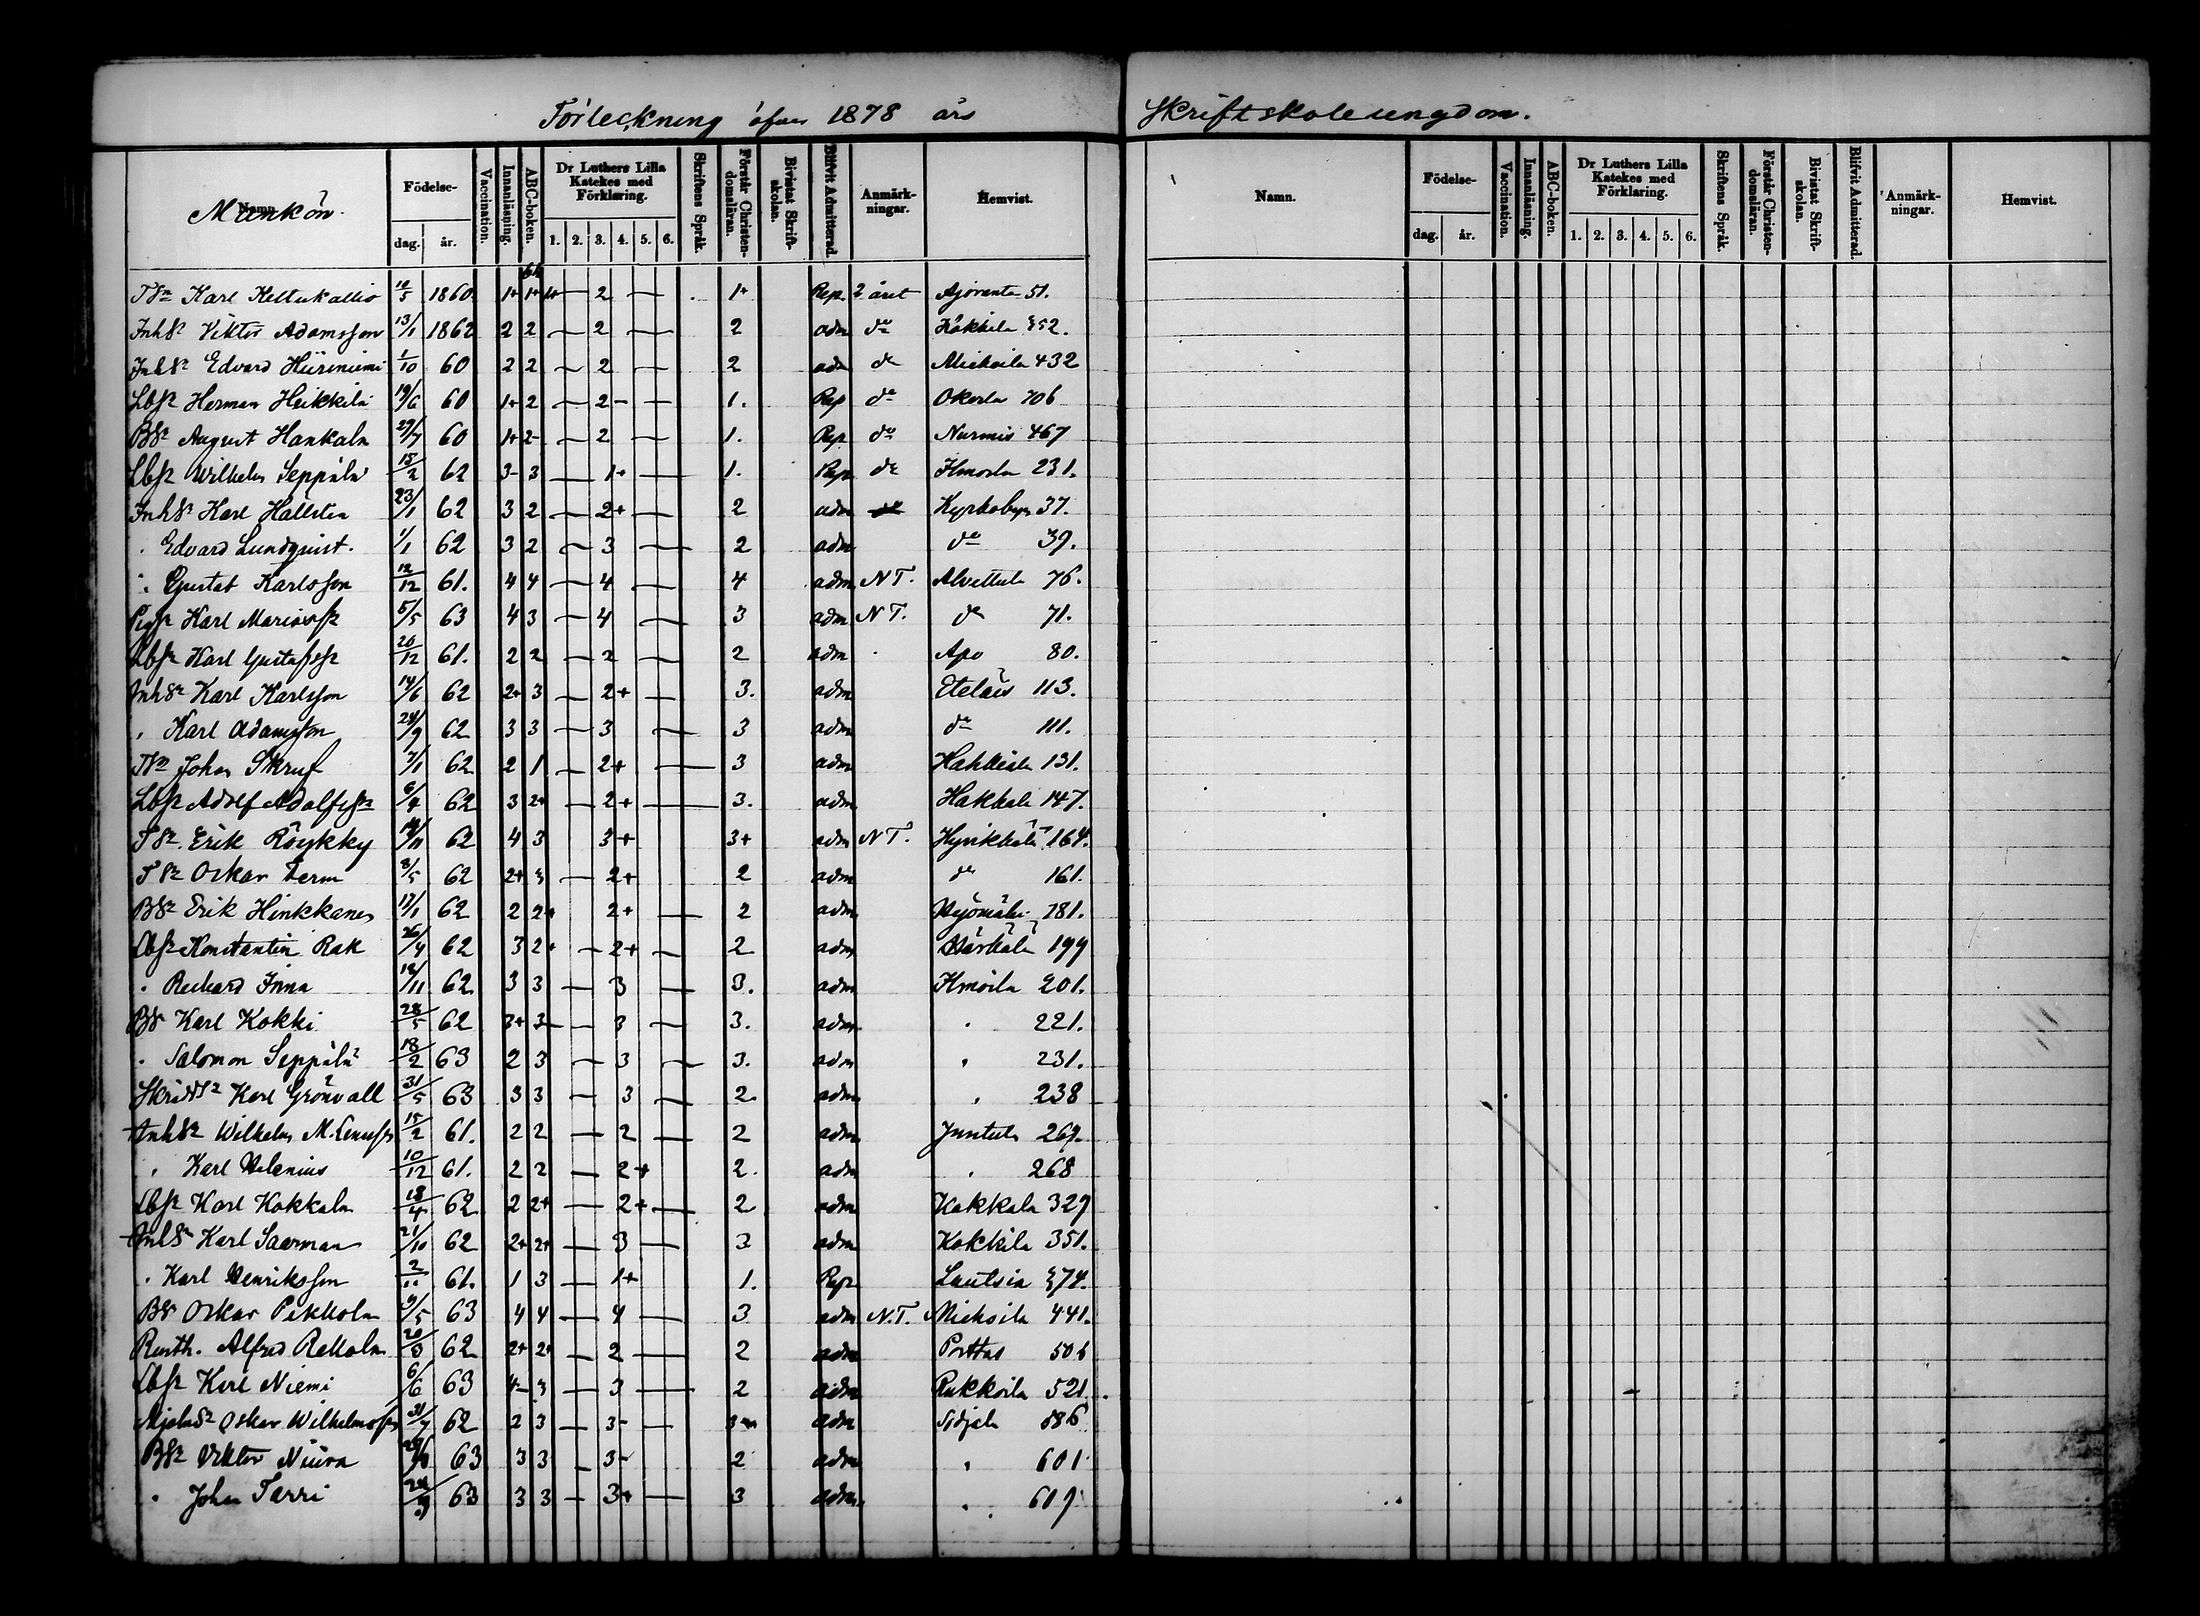 Förteckning öfver 1878 års Skriftskoleungdom.
Mankön.
Namn. Födelse- dag. år. Vaccination. Innanläsning. ABC-boken. Dr Luthers Lilla Katekes med Förklaring. 1. 2. 3. 4. 5. 6. Skriftens Språk. Förstår Christendomsläran. Bivistat Skriftskolan. Blifvit Admitterad. Anmärkningar. Hemvist.
Namn. Födelse- dag. år. Vaccination. Innanläsning. ABC-boken. Dr Luthers Lilla Katekes med Förklaring. 1. 2. 3. 4. 5. 6. Skriftens Språk. Förstår Christendomsläran. Bivistat Skriftskolan. Blifvit Admitterad. Anmärkningar. Hemvist.
Karl 10/5 1860. 1+ 1+ 1+ — 2 — 1+ Rep. 2 året 51.
Inhsn Viktor Adamsson 13/1 1862 2 2 — 2 — 2 adm do 352.
Inhsn Edvard Hiiriniemi 1/10 60 2 2 — 2 — 2 adm do 432
Lbsn Herman Heikkilä 19/6 60 1+ 2 — 2- — 1. Rep do 706
Bsn August Hankala 27/7 60 1+ 2- — 2 — 1. Rep. do Nurmis 467
Lbsn Wilhelm Seppälä 15/2 62 3- 3 — 1+ — 1. Rep do Ilmoila 231.
Inhsn Karl Hallsten 23/1 62 3 2 — 2+ — 2 adm Kyrkoby 37.
" Edvard Lundqvist. 1/1 62 3 2 — 3 — 2 adm do 39.
" Gustaf Karlsson 12/12 61. 4 4 — 4 — 4 adm NT. Alvettula 76.
Karl 5/5 63 4 3 — 4 — 3 adm NT. do 71.
Lbsn Karl Gustafsn 20/12 61. 2 2 — 2 — 2 adm Apo 80.
Inhsn Karl Karlsson 14/6 62 2+ 3 — 2+ — 3. adm Eteläis 113.
" Karl Adamsson 24/9 62 3 3 — 3 — 3 adm do 111.
Johan Skruf 7/1 62 2 1 — 2+ — 3 adm 131.
Lbsn Adolf Adolfssn 6/4 62 3 2+ — 2+ — 3. adm Hakkala 147.
Tsn Erik Röykky 62 4 3 3+ 3+ adm NT. Hyrikkälä 164.
Tsn Oskar 8/5 62 2+ 3 — 2+ 2 adm do 161.
Bsn Erik Hinkkanen 17/1 62 2 2+ 2+ — 2 adm 181.
Lbsn Konstantin Rak 26/4 62 3 2+ — 2+ — 2 adm 199
" Rickard Inna 18/11 62. 3 3 — 3 — 3. adm Ilmoila 201.
Bsn Karl Kokki 28/5 62 3+ 3 — 3 — 3. adm " 221.
" Salomon Seppälä 18/2 63 2 3 — 3 — 3. adm " 231.
Karl Grönvall 31/5 63 3 3 — 3 — 2 adm " 238
Inhsn Wilhelm 15/2 61. 2 2 — 2 — 2 adm 269.
" Karl Helenius 10/12 61. 2 2 — 2+ 2. adm " 268
Lbsn Karl Kokkala 18/4 62 2 2+ — 2+ — 2 adm Kokkala 329
Inhsn Karl Saarman 21/10 62 2+ 2+ — 3 — 3 adm Kokkila 351.
" Karl Henriksson 2/11 61. 1 3 — 1+ 1. Rep Lautsia 374.
Bsn Oskar Pekkola 9/5 63 4 4 — 4 — 3 adm N.T. Miehoila 441.
Rusth. Alfred Rekola 20/3 62 2+ 2+ — 2 — 2 adm Porttas 506
Lbsn Karl Niemi 6/6 63 4- 3 — 3 — 2 adm Rukkoila 521.
Oskar Wilhelmssn 31/7 62 2 3 — 3- — adm 586
Bsn Viktor 63 3 3 — 3- 2 adm " 601
" Johan Tarri 24/9 63 3 3 — 3+ — 3 adm " 609